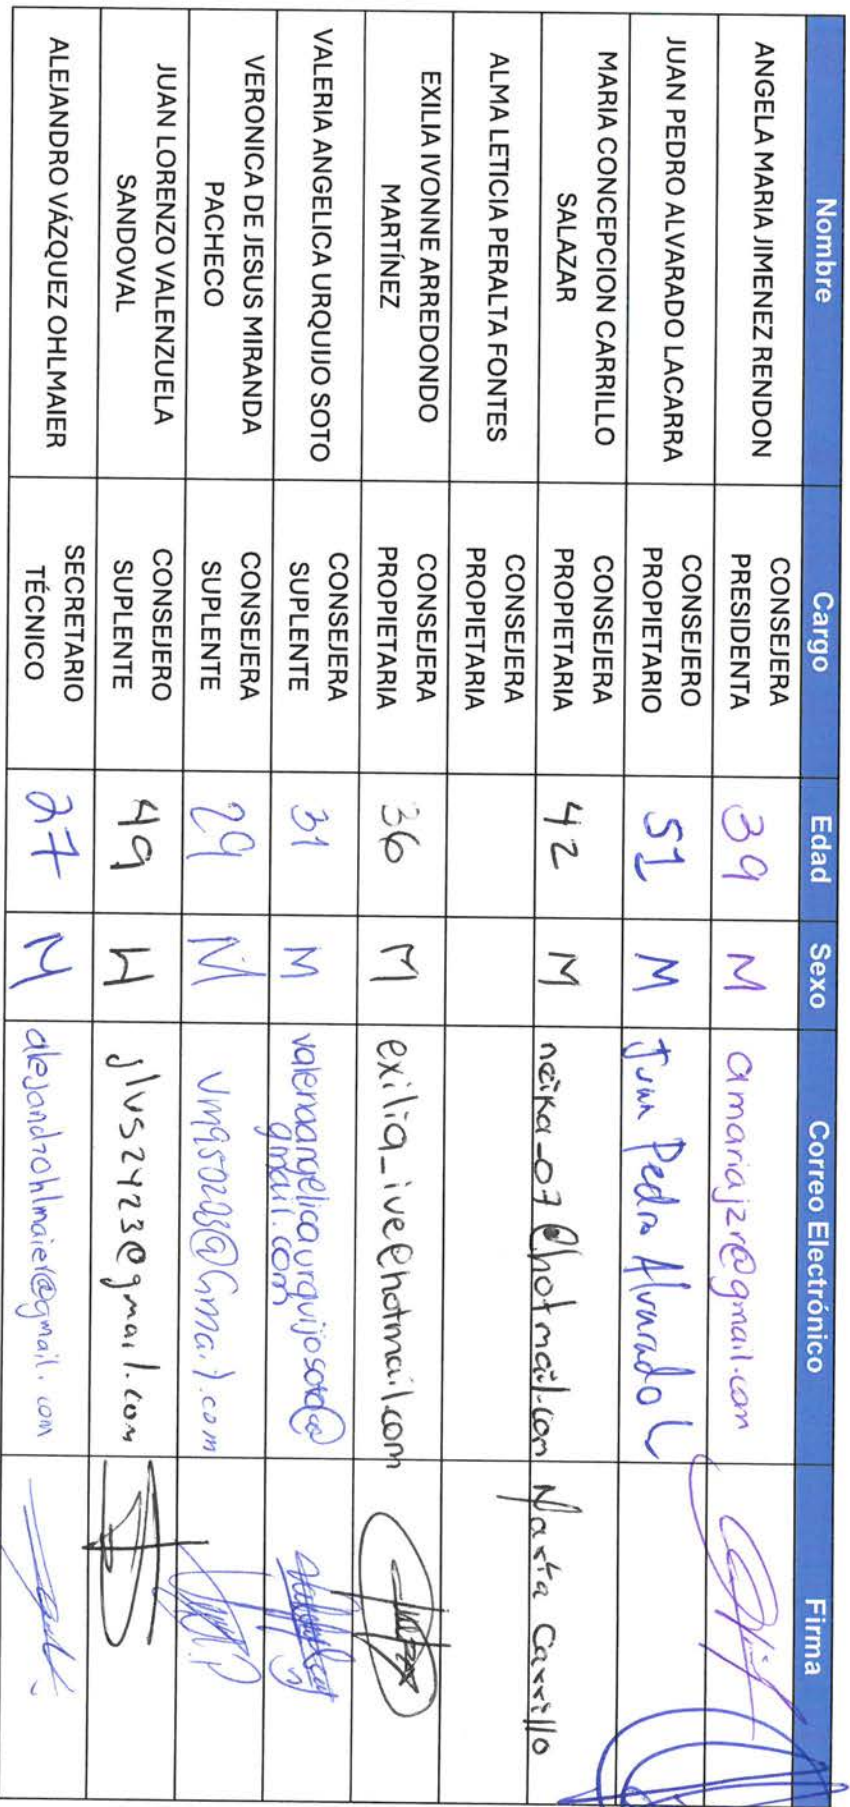 Nombre Cargo Edad Sexo Correo Electrónico Firma
ANGELA MARIA JIMENEZ RENDON CONSEJERA PRESIDENTA 39 M amariajzr@gmail.com
JUAN PEDRO ALVARADO LACARRA CONSEJERO PROPIETARIO 51 M Juan Pedro Alvarado L
MARIA CONCEPCION CARRILLO SALAZAR CONSEJERA PROPIETARIA 42 M neika_07@hotmail.com Maria Carrillo
ALMA LETICIA PERALTA FONTES CONSEJERA PROPIETARIA
EXILIA IVONNE ARREDONDO MARTÍNEZ CONSEJERA PROPIETARIA 36 M exilia_ive@hotmail.com
VALERIA ANGELICA URQUIJO SOTO CONSEJERA SUPLENTE 31 M valeriaangelicaurquijosoto@gmail.com
VERONICA DE JESUS MIRANDA PACHECO CONSEJERA SUPLENTE 29 M
JUAN LORENZO VALENZUELA SANDOVAL CONSEJERO SUPLENTE 49 H jlvs2423@gmail.com
ALEJANDRO VÁZQUEZ OHLMAIER SECRETARIO TÉCNICO 27 M alejandrohlmaier@gmail.com